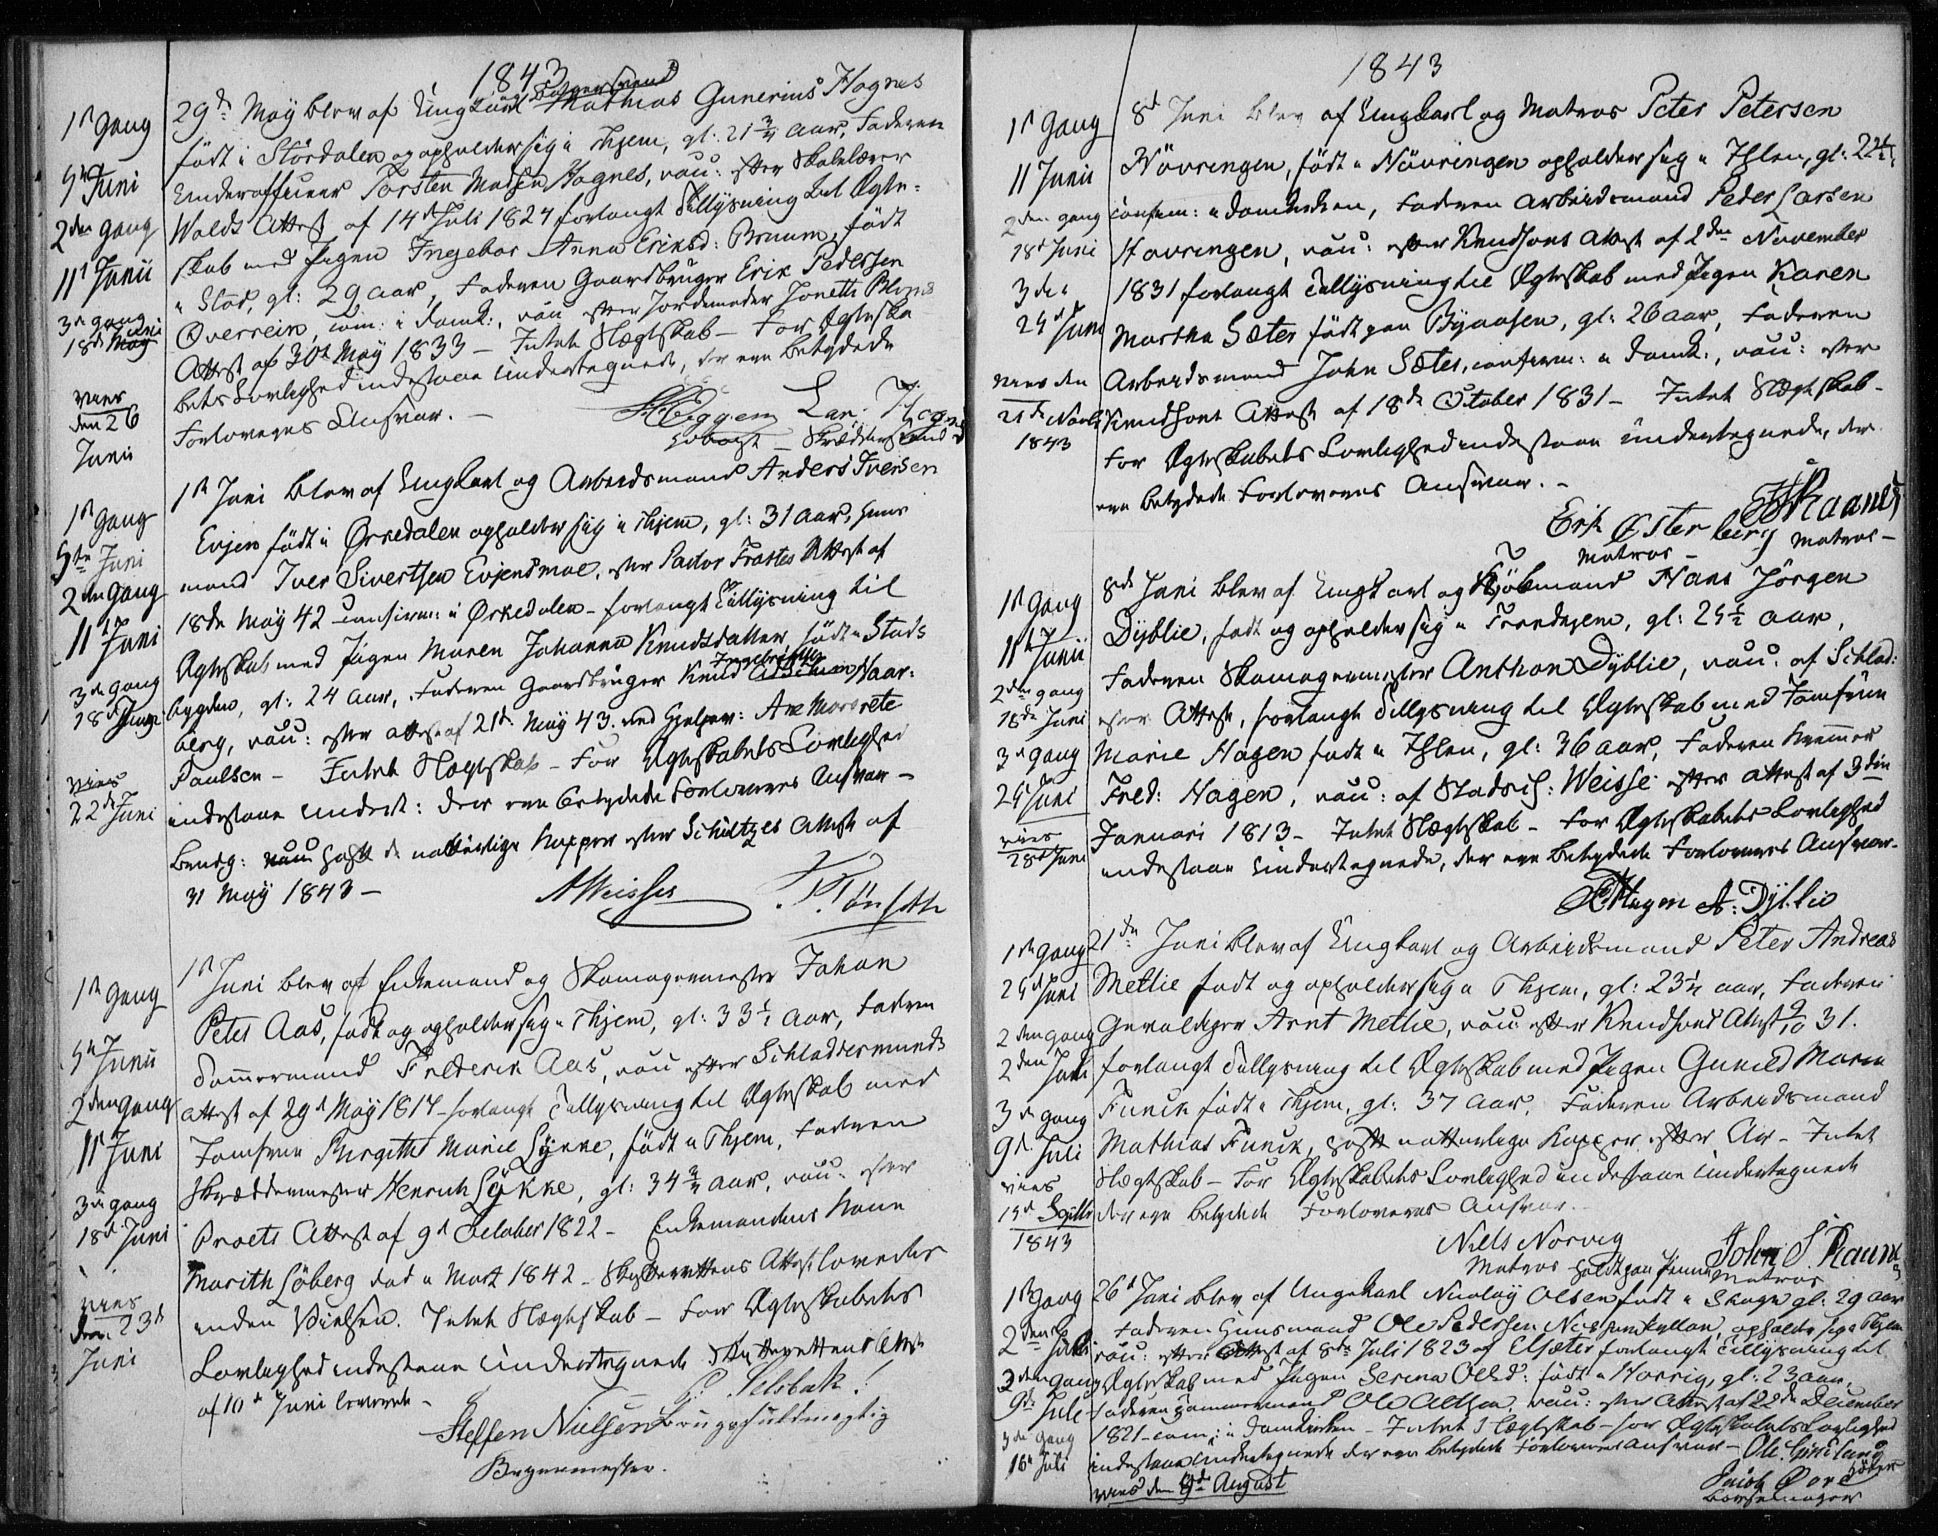 1843
1ste Gang
5te Juni
2den Gang
11te Junii
3de gang
18de Juni
viet
den 26
Junii
29de May blev af Ungkarl og Mathias Gunerius Hognes
født i Stördalen og opholder sig i Thjem, gl: 21 3/4 aar, Faderen
Underofficeer Torsten Madsen Hognes, vac: efter Skolelærer
Wolds Attest af 14de Juli 1824 forlangt Tillysning til Ægte-
skab med Pigen Ingebor Anna Eriksd: Bruum, født
i Stod, gl: 29 aar, Faderen Gaardbruger Erik Pedersen
Överrein, com: i Domk:, vac: efter Jordemoder Jonette
Attest af 30te May 1833 – Intet Slægtskab – For Ægteska-
bets Lovlighed indestaae undertegnede, der ere betydede
Forloveres Ansvar. –
H Eggen
Lar: Hognes
1ste Gang
5te Juni
2den Gang
11te Juni
3de Gang
18de Juni
viet
22de Juni
1ste Juni blev af Ungkarl og Arbeidsmand Anders Iversen
Evjen født i Örkedalen opholder sig i Thjem, gl: 31 aar, Huus-
mand Iver Sivertsen Evjensmoe, efter Pastor Frostes Attest af
18de May 42 – confirm: i Örkedalen – forlangt Tillysning til
Ægteskab med Pigen Maren Johanna Knudsdatter, født i Stads-
bygden, gl: 24 aar, Faderen Gaardbruger Knud Haar-
berg, vac: efter attest af 21de May 43. ved Hjelper: Ane Morsrete
Paulsen – Intet Slægtskab – For Ægteskabets Lovlighed
indestaae undert: der ere betydede Forloveres Ansvar –
havt de naturlige Kopper efter Schültzes Attest af
31 May 1843 –
A Weisses
1ste Gang
5te Junii
2den Gang
11te Juni
3die gang
18de Juni
viet
den 23de
Juni
1ste Juni blev af Enkemand og Skomagermester Johan
Peter Aas, født og opholder sig i Thjem, gl: 33 1/2 aar, Faderen
Tømmermand Frederik Aas, vac efter Schlad
attest af 29de May 1817 – forlangt Tillysning til Ægteskab med
Jomfrue Birgithe Marie Lykke, født i Thjem, Faderen
Skræddermester Henrich Lykke, gl: 34 3/4 aar, vac: efter
Proets Attest af 9de October 1822 – Enkemandens Kone
Marith Söberg død i Mart 1842 – Skifterettens Attest lovedes
inden Vielsen. Intet Slægtskab – For Ægteskabets
Lovlighed indestaae undertegnede Skifterettens Attest
af 10de Juni leveret –
P. Selsbak
Steffen Nielsen Brugsfuldmægtig
Bagermester.
1843
1ste Gang
11te Junii
2den gang
18de Juni
3de
25de Juni
viet den
21de Novbr
1843
8de Juni blev af Ungkarl og Matros Peter Petersen
Növringen, født i Növringen opholder sig i Ihlen, gl: 22 1/2,
confirm: i Domkirken, Faderen Arbeidsmand Peder Larsen
Hovringen, vac: efter Knudsons Attest af 2den November
1831 forlangt Tillysning til Ægteskab med Pigen Karen
Martha Sæter født paa Byaasen, gl: 26 aar, Faderen
Arbeidsmand John Sæter, confirm: i Domk:, vac: efter
Knudsons Attest af 18de October 1831 – Intet Slægtskab –
For Ægteskabets Lovlighed indestaae undertegnede, der
ere betydede Forloveres Ansvar. –
Erik Österberg
Matros –
Matros –
1ste Gang
11te Junii
2den gang
18de Juni
3de gang
25de Juni
viet
28de Juni
8de Juni blev af Ungkarl og Kjöbmand Hans Jörgen
Dyblie, født og opholder sig i Trondhjem, gl: 25 1/2 aar,
Faderen Skomagermester Anthon Dyblie, vac: af Schlad:
efter Attest, forlangt Tillysning til Ægteskab med Jomfrue
Marie Hagen født i Ihlen, gl: 36 aar, Faderen Kræmmer
Fred: Hagen, vac: af Stadsch: Weisse efter attest af 3die
Januari 1813 – Intet Slægtskab – For Ægteskabets Lovlighed
indestaae undertegnede, der ere betydede Forloveres Ansvar –
Hagen A. Dyblie
1ste Gang
25de Juni
2den Gang
2den Juli
3de gang
9de Juli
viet
15de Septbr
1843
21de Juni blev af Ungkarl og Arbeidsmand Peter Andreas
Metlie født og opholder sig i Thjem, gl: 23 1/2 aar, Faderen
Gevaldiger Arnt Metlie, vac efter Knudsons Attest 9/10 31.
forlangt Tillysning til Ægteskab med Pigen Gunild Maria
Funck født i Thjem, gl: 37 aar, Faderen Arbeidsmand
Mathias Funck, havt naturlige Kopper efter – Intet
Slægtskab – For Ægteskabets Lovlighed indestaae undertegnede
der ere betydede Forloveres Ansvar.
Niels Norvig
Matros holdt paa Pennen
John S. Raune
Matros
1ste Gang
2den Juli
2den gang
9de Juli
3de gang
16de Juli
viet den 9de August
26de Juni blev af Ungekarl Nicolay Olsen født i Skogn gl: 29 aar
Faderen Huusmand Ole Pedersen, opholder sig i Thjem
vac: efter Attest af 8de Juli 1823 af Elsæter forlangt Tillysning til
Ægteskab med Pigen Serina Olsd: født i Norvig, gl: 23 aar,
Faderen Tømmermand Ole Olsen, vac: efter Attest af 22de December
1821 – com: i Domkirken – Intet Slægtskab – for Ægteskabets Lovlighed
indestaae undertegnede der ere betydede Forloveres Ansvar –
Jacob Öore